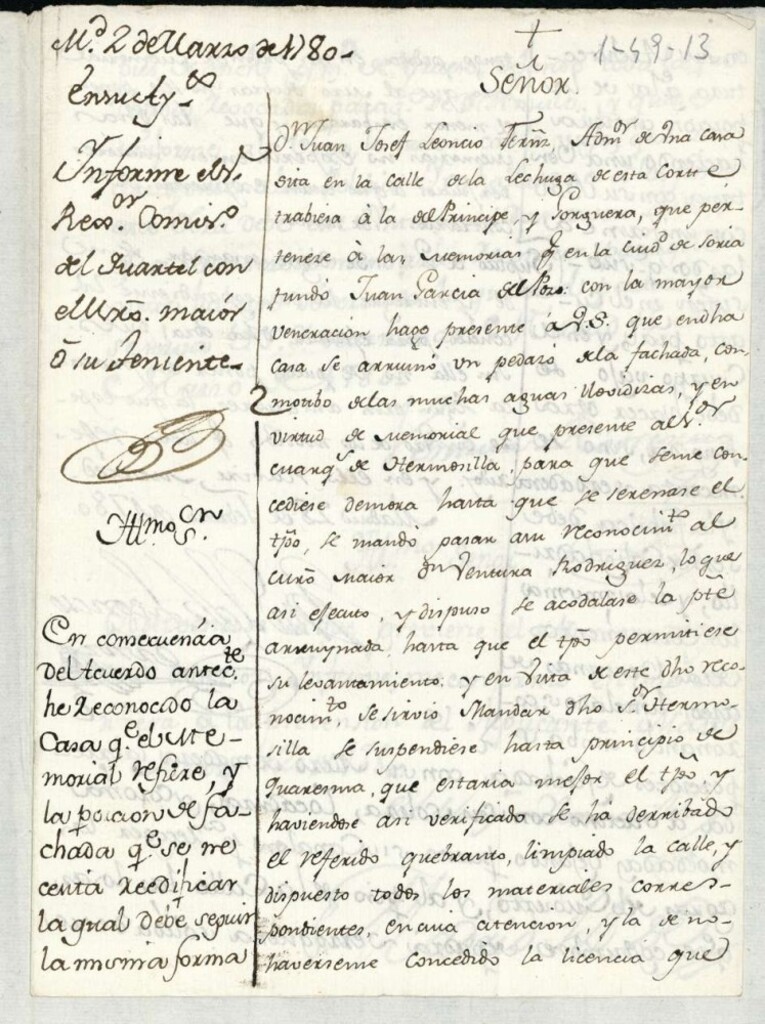 M.d 2 de Marzo de 1780.
En su Ay.to
Informe el S.r
Rexo.r Comis.o
del Quartel con
el Mro. maiór
ó su Teniente.
Yll.mo S.or
En consecuenzia
del Acuerdo antec.te
he Reconocido la
Casa q.e el Me-
morial refiere, y
la porcion de fa-
chada q.e se ne
cesita reedificar
la qual debe seguir
la misma forma
1-49-13
Señor.
D.n Juan Josef Leoncio Frnz, Adm.or de una casa
sita en la calle de la Lechuga de esta Corte
trabiesa à la del Principe, y Gorguera, que per-
tenece à las memorias q en la ciud.d de Soria
fundó Juan Garcia del Pozo: con la mayor
veneracion hago presente à V.S. que en dha
casa se arruinó un pedazo de la fachada, con
motibo de las muchas aguas llovidizas, y en
virtud de memorial que presente al S.or
Marq.s de Hermosilla, para que se me con-
cediese demora hasta que se serenase el
tpo, se mandó pasar a su reconocim.to al
Mrô Maior D.n Ventura Rodriguez, lo que
asi ejecuto, y dispuso se acodalase la pte
arruynada, hasta que el tpo permitiese
su levantamiento: y en vista de este dho reco-
nocim.to, se sirvio Mandar dho S.or Hermo-
silla se suspendiese hasta principio de
Quaresma, que estaria mejor el tpo, y
haviendose asi verificado se ha derribado
el referido quebranto, limpiado la calle, y
dispuesto todos los materiales corres-
pondientes, en cuia atencion, y la de no-
haverseme concedido la licencia que